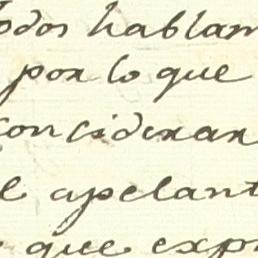 todos hablam
por lo que
consideran
el apelant
que exp